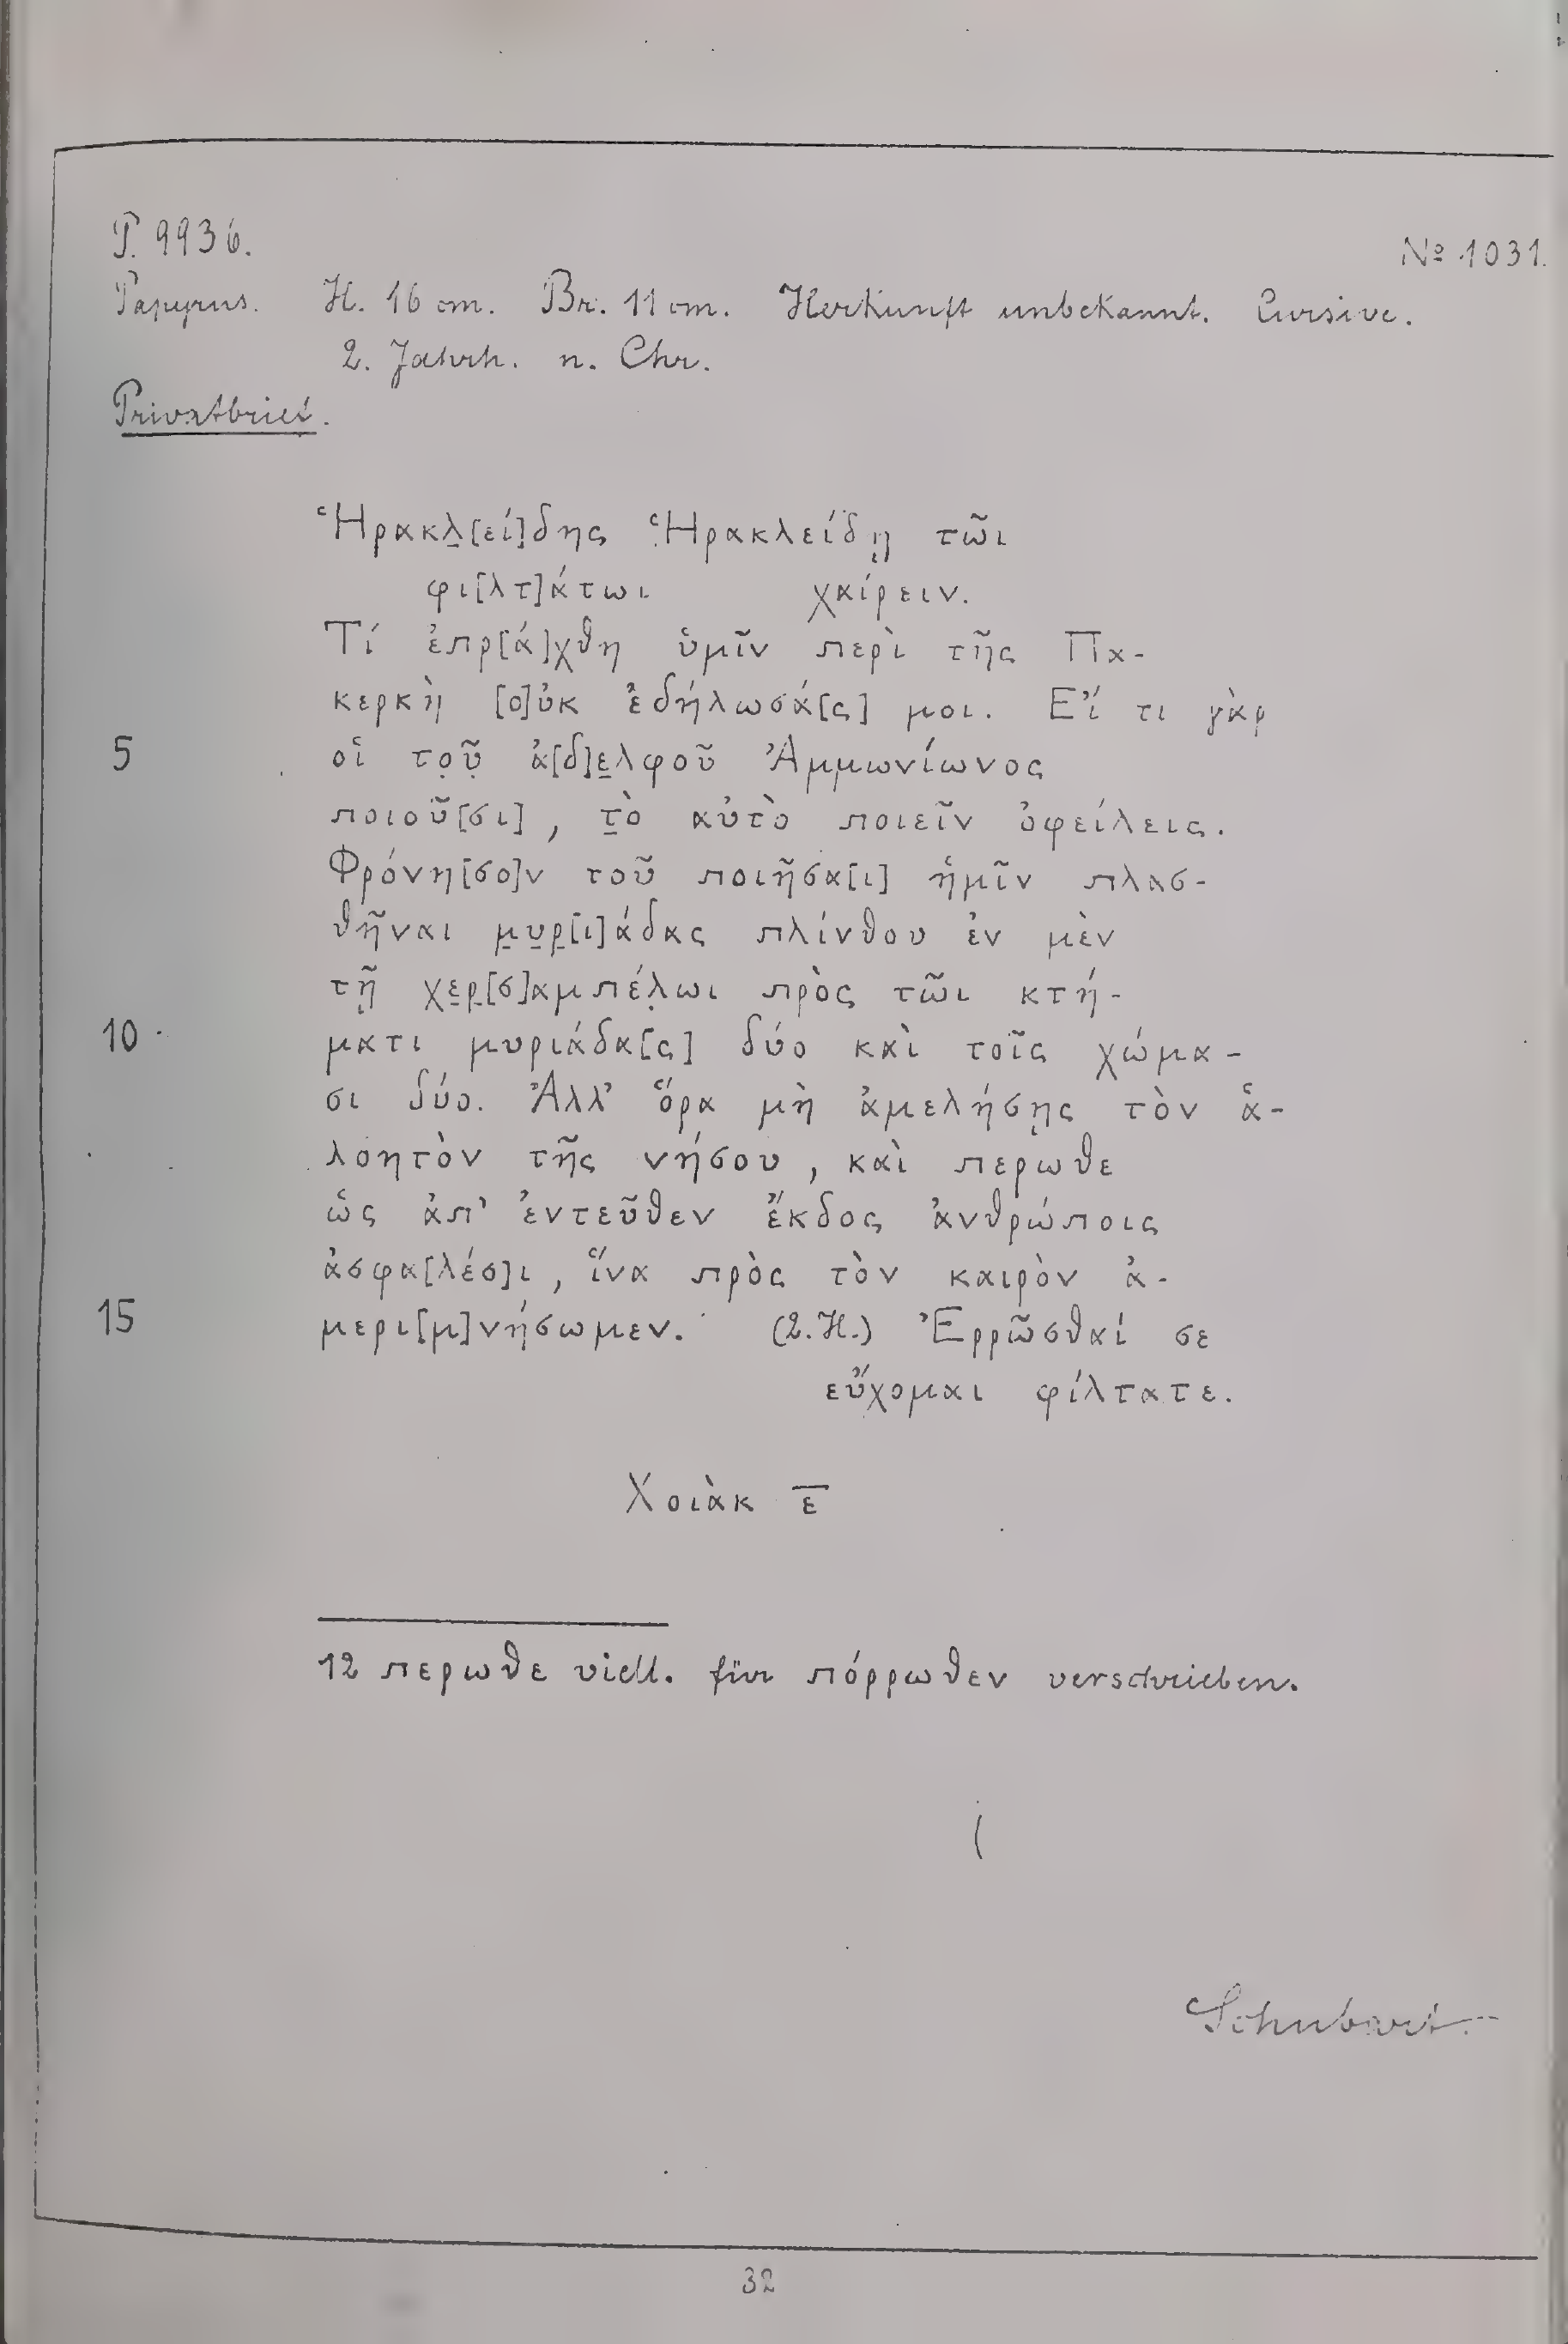 P. 9936.
№ 1031.
Papyrus. H. 16 cm. Br. 11 cm. Herkunft unbekannt. Cursive.
2. Jahrh. n. Chr.
Privatbrief.
Ἡρακλ̣[εί]δης Ἡρακλείδῃ τῶι
φι[λτ]άτωι χαίρειν.
Τί ἐπρ[ά]χθη ὑμῖν περὶ τῆς Πα-
κερκὴ [ο]ὐκ ἐδήλωσά[ς] μοι. Εἴ τι γὰρ
5 οἱ το̣ῦ̣ ἀ[δ]ε̣λφοῦ Ἀμμωνίωνος
ποιοῦ[σι], τ̣ὸ αὐτὸ ποιεῖν ὀφείλεις.
Φρόνη[σο]ν τοῦ ποιῆσα[ι] ἡμῖν πλασ-
θῆναι μ̣υ̣ρ̣[ι]άδας πλίνθου ἐν μὲν
τῇ χε̣ρ̣[σ]αμπέλ̣ωι πρὸς τῶι κτή-
10 ματι μυριάδα[ς] δύο καὶ τοῖς χώμα-
σι δύο. Ἀλλ' ὅρα μὴ ἀμελήσῃς τὸν ἁ-
λοητὸν τῆς νήσου, καὶ περωθε
ὡς ἀπ' ἐντεῦθεν ἔκδος ἀνθρώποις
ἀσφα[λέσ]ι, ἵνα πρὸς τὸν καιρὸν ἀ-
15 μερι[μ]νήσωμεν. (2.H.) Ἐρρῶσθαί σε
εὔχομαι φίλτατε.
Χοιὰκ ε̅
12 περωθε viell. für πόρρωθεν verschrieben.
Schubart.
32